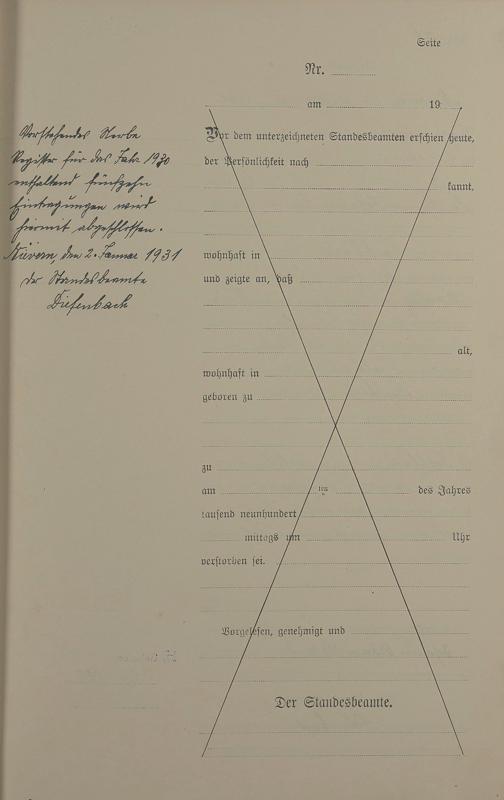 Seite
Nr.
am 19
Vorstehendes Sterbe
Register für das Jahr 1930
enthaltend fünfzehn
Eintragungen wird
hiermit abgeschlossen.
Nievern, den 2. Januar 1931
der Standesbeamte
Diefenbach
Vor dem unterzeichneten Standesbeamten erschien heute,
der Persönlichkeit nach
kannt,
wohnhaft in
und zeigte an, daß
alt,
wohnhaft in
geboren zu
zu
am ten des Jahres
tausend neunhundert
mittags um Uhr
verstorben sei.
Vorgelesen, genehmigt und
Der Standesbeamte.